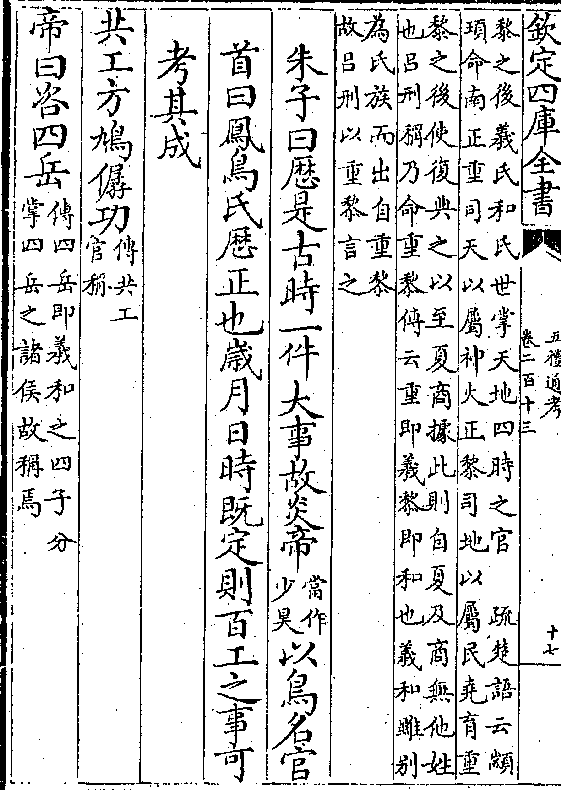 欽定四庫全書
五禮通考
卷二百十三
十七
黎之後羲氏和氏世掌天地四時之官　疏楚語云顓
頊命南正重司天以屬神火正黎司地以屬民堯育重
黎之後使復典之以至夏商據此則自夏及商無他姓
也吕刑稱乃命重黎傳云重即羲黎即和也羲和雖别
為氏族而出自重黎
故吕刑以重黎言之
朱子曰厯是古時一件大事故炎帝當作少昊以鳥名官
首曰鳳鳥氏厯正也歲月日時既定則百工之事可
考其成
共工方鳩僝功傳共工官稱
帝曰咨四岳傳四岳即羲和之四子分掌四岳之諸侯故稱焉